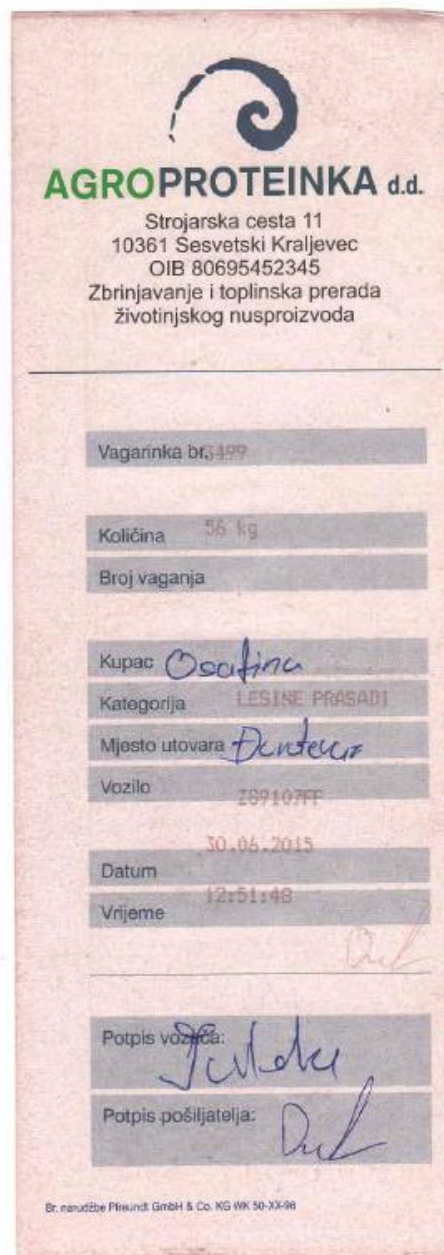 AGROPROTEINKA d.d.
Strojarska cesta 11
10361 Sesvetski Kraljevec
OIB 80695452345
Zbrinjavanje i toplinska prerada
životinjskog nusproizvoda
Vagarinka br. 3499
Količina 56 kg
Broj vaganja
Kupac Osatina
Kategorija LESINE PRASADI
Mjesto utovara
Vozilo ZG9107FF
30.06.2015
Datum
12:51:48
Vrijeme
Potpis vozača:
Potpis pošiljatelja:
Br. narudžbe Pfreundt GmbH & Co. KG WK 50-XX-96